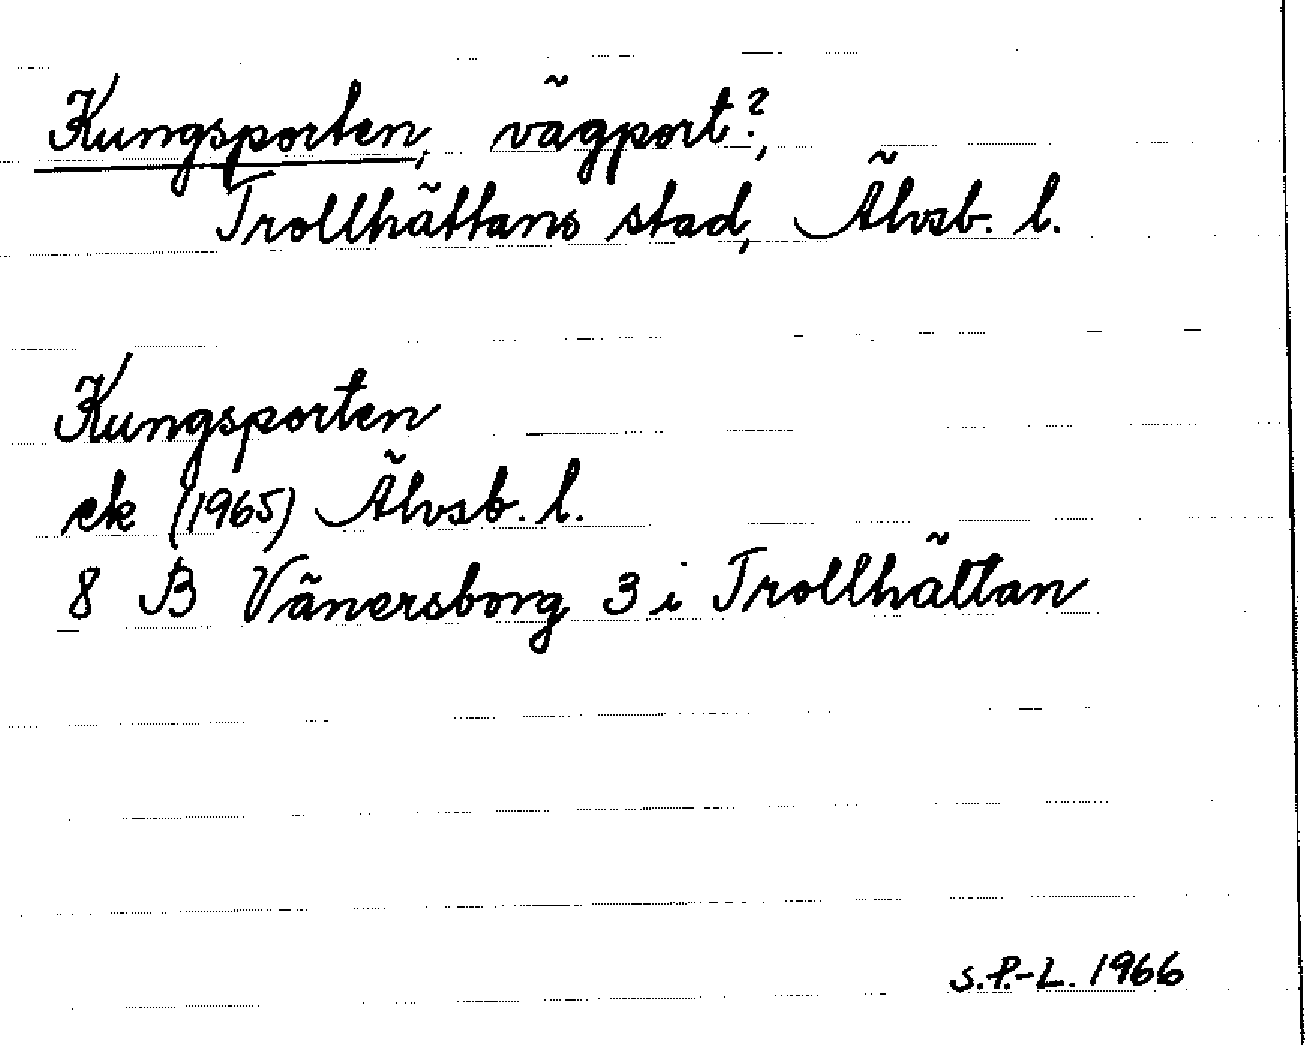 Kungsporten, vägport?,
Trollhättans stad, Älvsb. l.
Kungsporten
ek (1965) Älvsb. l.
8 B Vänersborg 3 i Trollhättan
S.P.-L. 1966